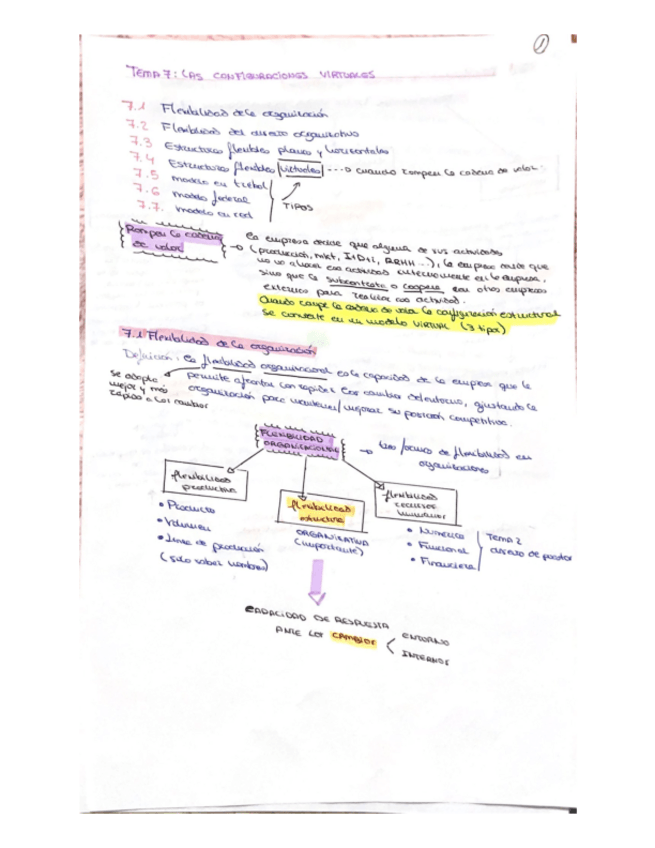 1
TEMA 7: LAS CONFIGURACIONES VIRTUALES
7.1 Flexibilidad de la organización
7.2 Flexibilidad del diseño organizativo
7.3 Estructuras flexibles planas y horizontales
7.4 Estructuras flexibles virtuales ---o cuando rompen la cadena de valor.
7.5 modelo en trebol
7.6 modelo federal
7.7. modelo en red
TIPOS
Rompen la cadena de valor
La empresa decide que alguna de sus actividades
(producción, mkt, I+D+i, RRHH...), la empresa decide que
no va a hacer esa actividad internamente en la empresa,
sino que la subcontrata o coopera con otras empresas
externas para realizar esa actividad.
Cuando rompe la cadena de valor la configuración estructural
se convierte en un modelo VIRTUAL (3 tipos)
7.1 Flexibilidad de la organización
Definición: La flexibilidad organizacional es la capacidad de la empresa que le
permite afrontar con rapidez los cambios del entorno, ajustando la
organización para mantener/mejorar su posición competitiva.
Se adapta
mejor y más
rápido a los cambios
FLEXIBILIDAD
ORGANIZACIONAL
tres formas de flexibilidad en
organizaciones
flexibilidad
productiva
• Producto
• Volumen
• Línea de producción
(solo saber nombres)
flexibilidad
estructura
ORGANIZATIVA
(importante)
flexibilidad
recursos
humanos
• Numérica
• Funcional
• Financiera
Tema 2
diseño de puestos
CAPACIDAD DE RESPUESTA
ANTE LOS CAMBIOS
ENTORNO
INTERNOS